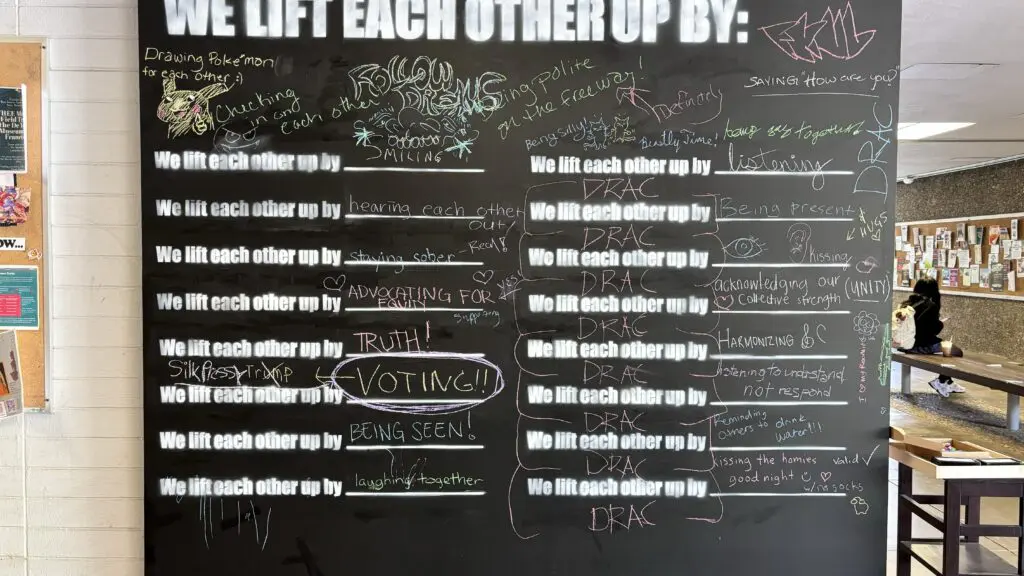 WE LIFT EACH OTHER UP BY:
Drawing Poke'mon
for each other :)
Checking
in and
each other
FOLLOW
DREAMS
SMILING
We lift each other up by
We lift each other up by hearing each other
out!
We lift each other up by staying sober
Real!
We lift each other up by ADVOCATING FOR
EQUITY
yes!
supporting
We lift each other up by TRUTH!
Trump
We lift each other up by VOTING!!
We lift each other up by BEING SEEN!
We lift each other up by laughing together
Being polite
on the freeway!
Definitely
SAYING "How are you?"
Being silly!
together
We lift each other up by listening
DRAC
DRAC
We lift each other up by Being present
HUGS
DRAC
We lift each other up by kissing
DRAC
We lift each other up by acknowledging our
collective strength
(UNITY)
DRAC
We lift each other up by HARMONIZING & C
DRAC
We lift each other up by listening to understand
not respond
DRAC
We lift each other up by Reminding
others to drink
water!!!
DRAC
We lift each other up by kissing the homies
good night
valid
w/ socks
DRAC